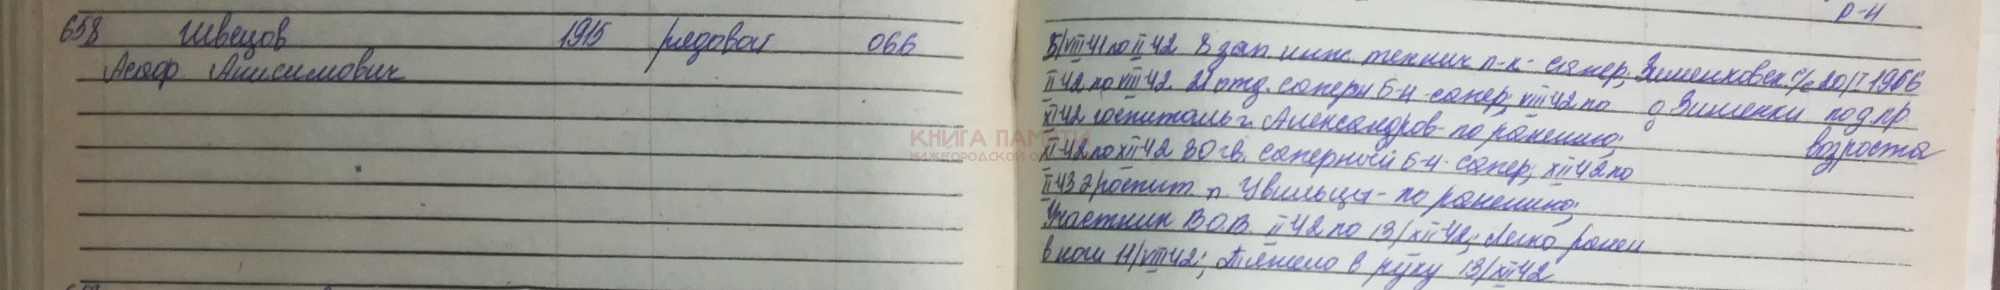 р-н
658 Швецов 1915 рядовой 066
Асаф Анисимович
5/VIII 41 по II 42 8 зап. инж. технич п-к - сапер; Зименковск. с/с 20/I 1966
II 42 по VIII 42 21 отд. саперн б-н - сапер; VIII 42 по д Зименки под пр.
XI 42 госпиталь г. Александров - по ранению; возроста
XI 42 по XII 42 80 гв. саперный б-н - сапер; XII 42 по
II 43 госпит. п. Увильды - по ранению;
Участник В.О.В. II 42 по 13/XII 42; Легко ранен
в ноги 11/VIII 42; Тяжело в руку 13/XII 42
КНИГА ПАМЯТИ
НИЖЕГОРОДСКОЙ